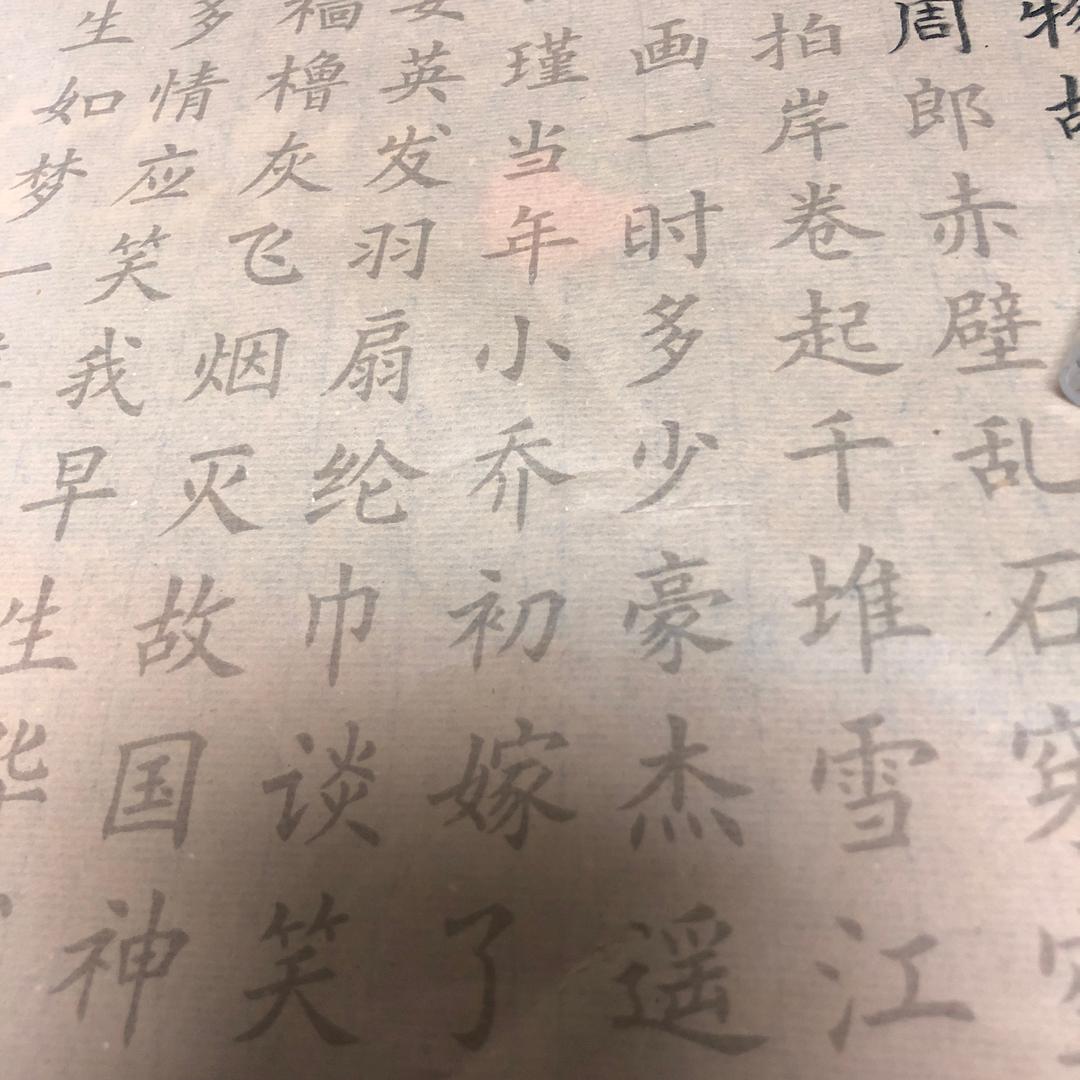 物
周郎赤壁乱石穿
拍岸卷起千堆雪江
画一时多少豪杰遥
瑾当年小乔初嫁了
英发羽扇纶巾谈笑
橹灰飞烟灭故国神
多情应笑我早生华
生如梦一